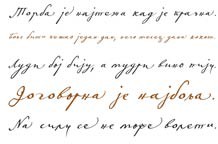 Торба је најтежа кад је празна.
Боље бити
један дан, него месец дана
Луди бој бију, а мудри вино пију.
Договорна је најбоља.
На силу се не може волети.